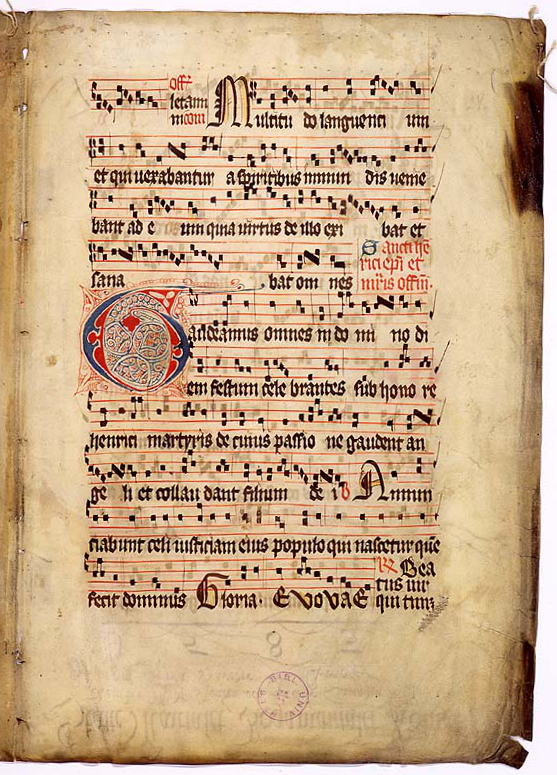 Off
letam
ini com Multitu do languenti um
et qui uexabantur a spiritibus inmun dis uenie
bant ad e um quia uirtus de illo exi bat et
sana bat om nes
Sancti he
rici epi et
mris offm.
Gaudeamus omnes in do mi no di
em festum cele brantes sub hono re
henrici martyris de cuius passio ne gaudent an
ge li et collau dant filium de i Annun
ciabunt celi iusticiam eius populo qui nascetur que
fecit dominus Gloria. EVOVAE
Bea
tus uir
qui tim
BIBL UNIV